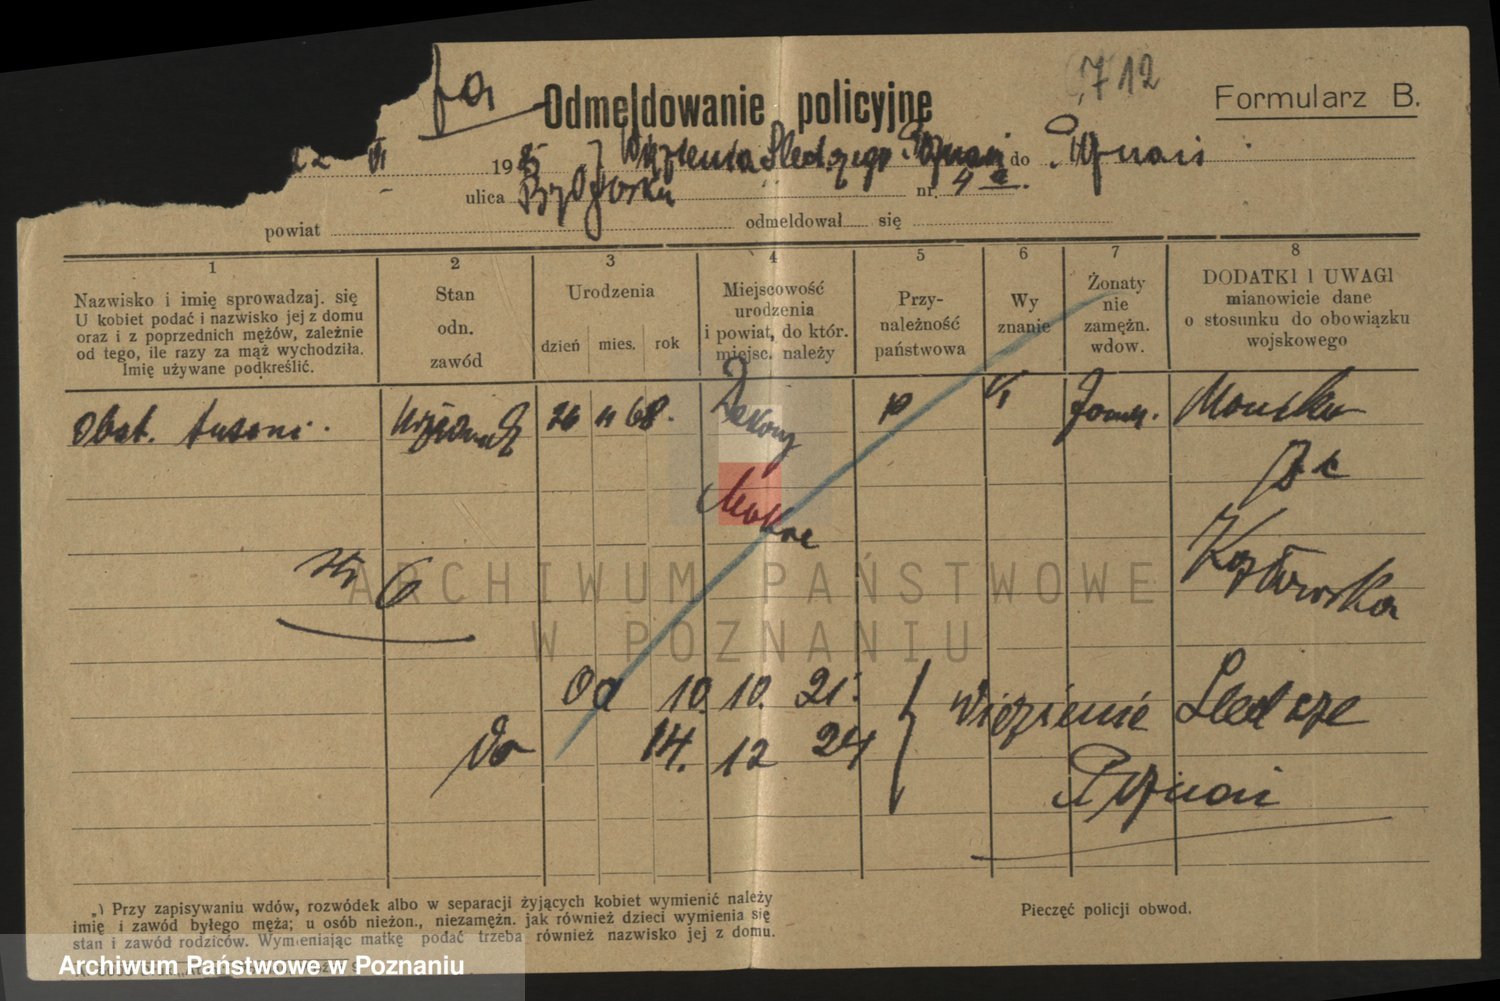 712
Odmeldowanie policyjne
Formularz B.
19 25 Więzienia Śledczego Poznań do Poznań
ulica nr. 4
powiat odmeldował się
1 2 3 4 5 6 7 8
Nazwisko i imię sprowadzaj. się
U kobiet podać i nazwisko jej z domu
oraz i z poprzednich mężów, zależnie
od tego, ile razy za mąż wychodziła.
Imię używane podkreślić.
Stan
odn.
zawód
Urodzenia
dzień mies. rok
Miejscowość
urodzenia
i powiat, do któr.
miejsc. należy
Przy-
należność
państwowa
Wy
znanie
Żonaty
nie
zamężn.
wdow.
DODATKI I UWAGI
mianowicie dane
o stosunku do obowiązku
wojskowego
26 11 68. p
Mokre
6
Kozłowska
Od 10. 10. 21. Więzienie Śledcze
do 14. 12 24 Poznań
„) Przy zapisywaniu wdów, rozwódek albo w separacji żyjących kobiet wymienić należy
imię i zawód byłego męża; u osób nieżon., niezamężn. jak również dzieci wymienia się
stan i zawód rodziców. Wymieniając matkę podać trzeba również nazwisko jej z domu.
Pieczęć policji obwod.
ARCHIWUM PAŃSTWOWE
W POZNANIU
Archiwum Państwowe w Poznaniu